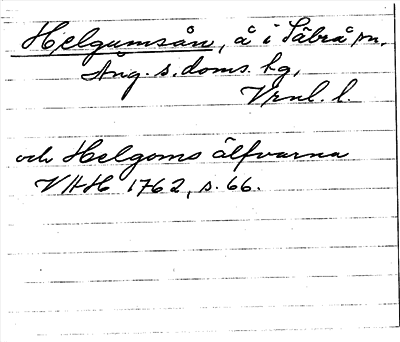 Helgumsån, å i Säbrå sn,
Ång. s. doms. hg,
Vrnl. l.
och Helgoms älfvarna
VHH 1762, s. 66.